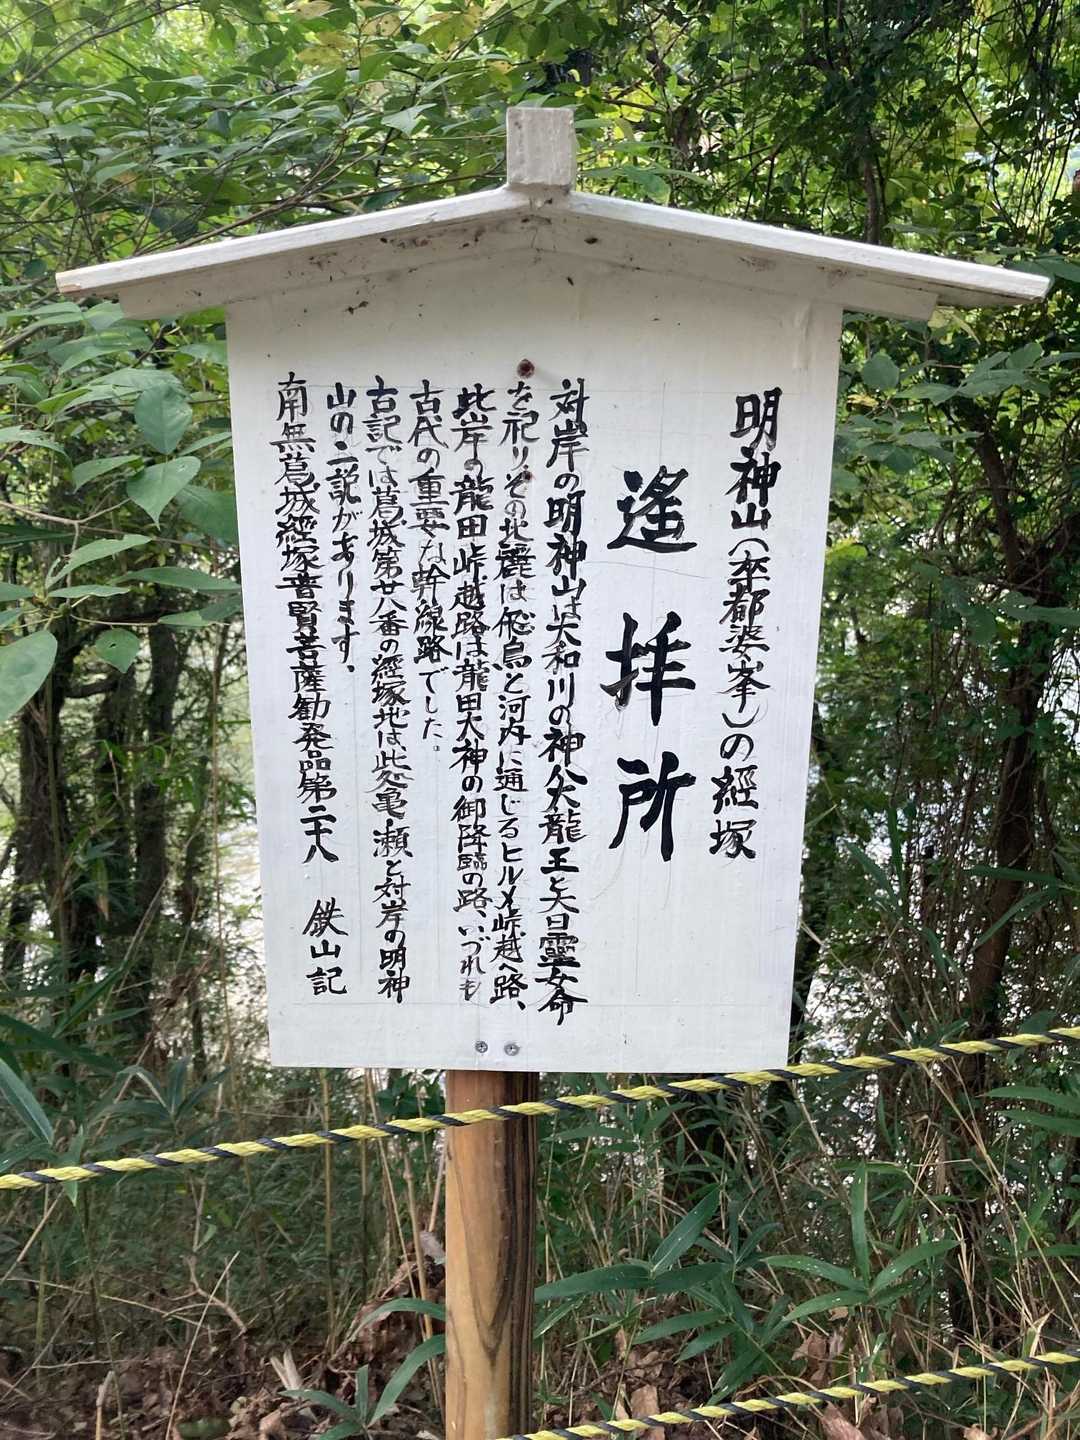 明神山(卒都婆峯)の經塚
遙拝所
対岸の明神山は大和川の神八大龍王と大日靈女命
を祀りその北麓は飛鳥と河内に通じるヒルメ峠越へ路、
此岸の龍田峠越路は龍田大神の御降臨の路、いづれも
古代の重要な幹線路でした。
古記では葛城第廿八番の經塚地は此処亀ノ瀬と対岸の明神
山の二説があります、
南無葛城經塚普賢菩薩勧発品第二十八 鉄山記